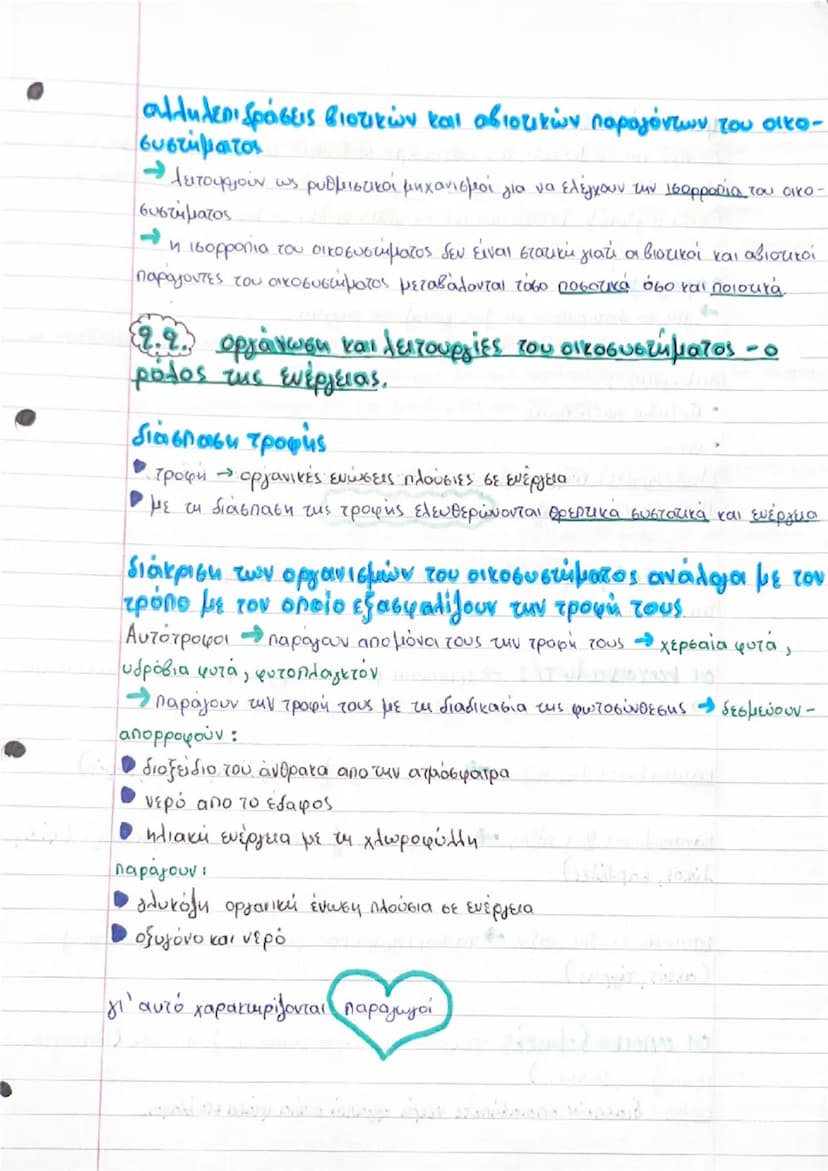 αλληλεπιδράσεις βιοτικών και αβιοτικών παραγόντων του οικο-
συστήματος
→ λειτουργούν ως ρυθμιστικοί μηχανισμοί για να ελέγχουν την ισορροπία του οικο-
συστήματος
→ η ισορροπία του οικοσυστήματος δεν είναι στατική γιατί οι βιοτικοί και αβιοτικοί
παράγοντες του οικοσυστήματος μεταβάλονται τόσο ποσοτικά όσο και ποιοτικά.
2.2. οργάνωση και λειτουργίες του οικοσυστήματος - ο
ρόλος της ενέργειας.
διάσπαση τροφής
τροφή → οργανικές ενώσεις πλούσιες σε ενέργεια
με τη διάσπαση της τροφής ελευθερώνονται θρεπτικά συστατικά και ενέργεια
διάκριση των οργανισμών του οικοσυστήματος ανάλογα με τον
τρόπο με τον οποίο εξασφαλίζουν την τροφή τους
Αυτότροφοι → παράγουν απο μόνα τους την τροφή τους → χερσαία φυτά,
υδρόβια φυτά, φυτοπλαγκτόν
→ παράγουν την τροφή τους με τη διαδικασία της φωτοσύνθεσης → δεσμεύουν-
απορροφούν:
διοξείδιο του άνθρακα απο την ατμόσφαιρα
νερό απο το έδαφος
ηλιακή ενέργεια με τη χλωροφύλλη
παράγουν:
γλυκόζη οργανική ένωση πλούσια σε ενέργεια
οξυγόνο και νερό
γι' αυτό χαρακτηρίζονται παραγωγοί